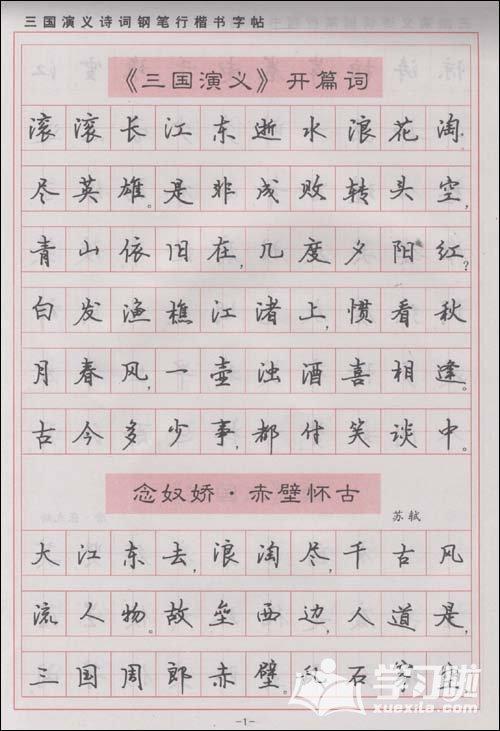 三国演义诗词钢笔行楷书字帖
《三国演义》开篇词
滚滚长江东逝水浪花淘
尽英雄。是非成败转头空,
青山依旧在,几度夕阳红?
白发渔樵江渚上,惯看秋
月春风,一壶浊酒喜相逢。
古今多少事,都付笑谈中。
念奴娇·赤壁怀古
苏轼
大江东去,浪淘尽,千古风
流人物。故垒西边,人道是,
三国周郎赤壁。乱石穿空
学习啦
www.xuexila.com
-1-